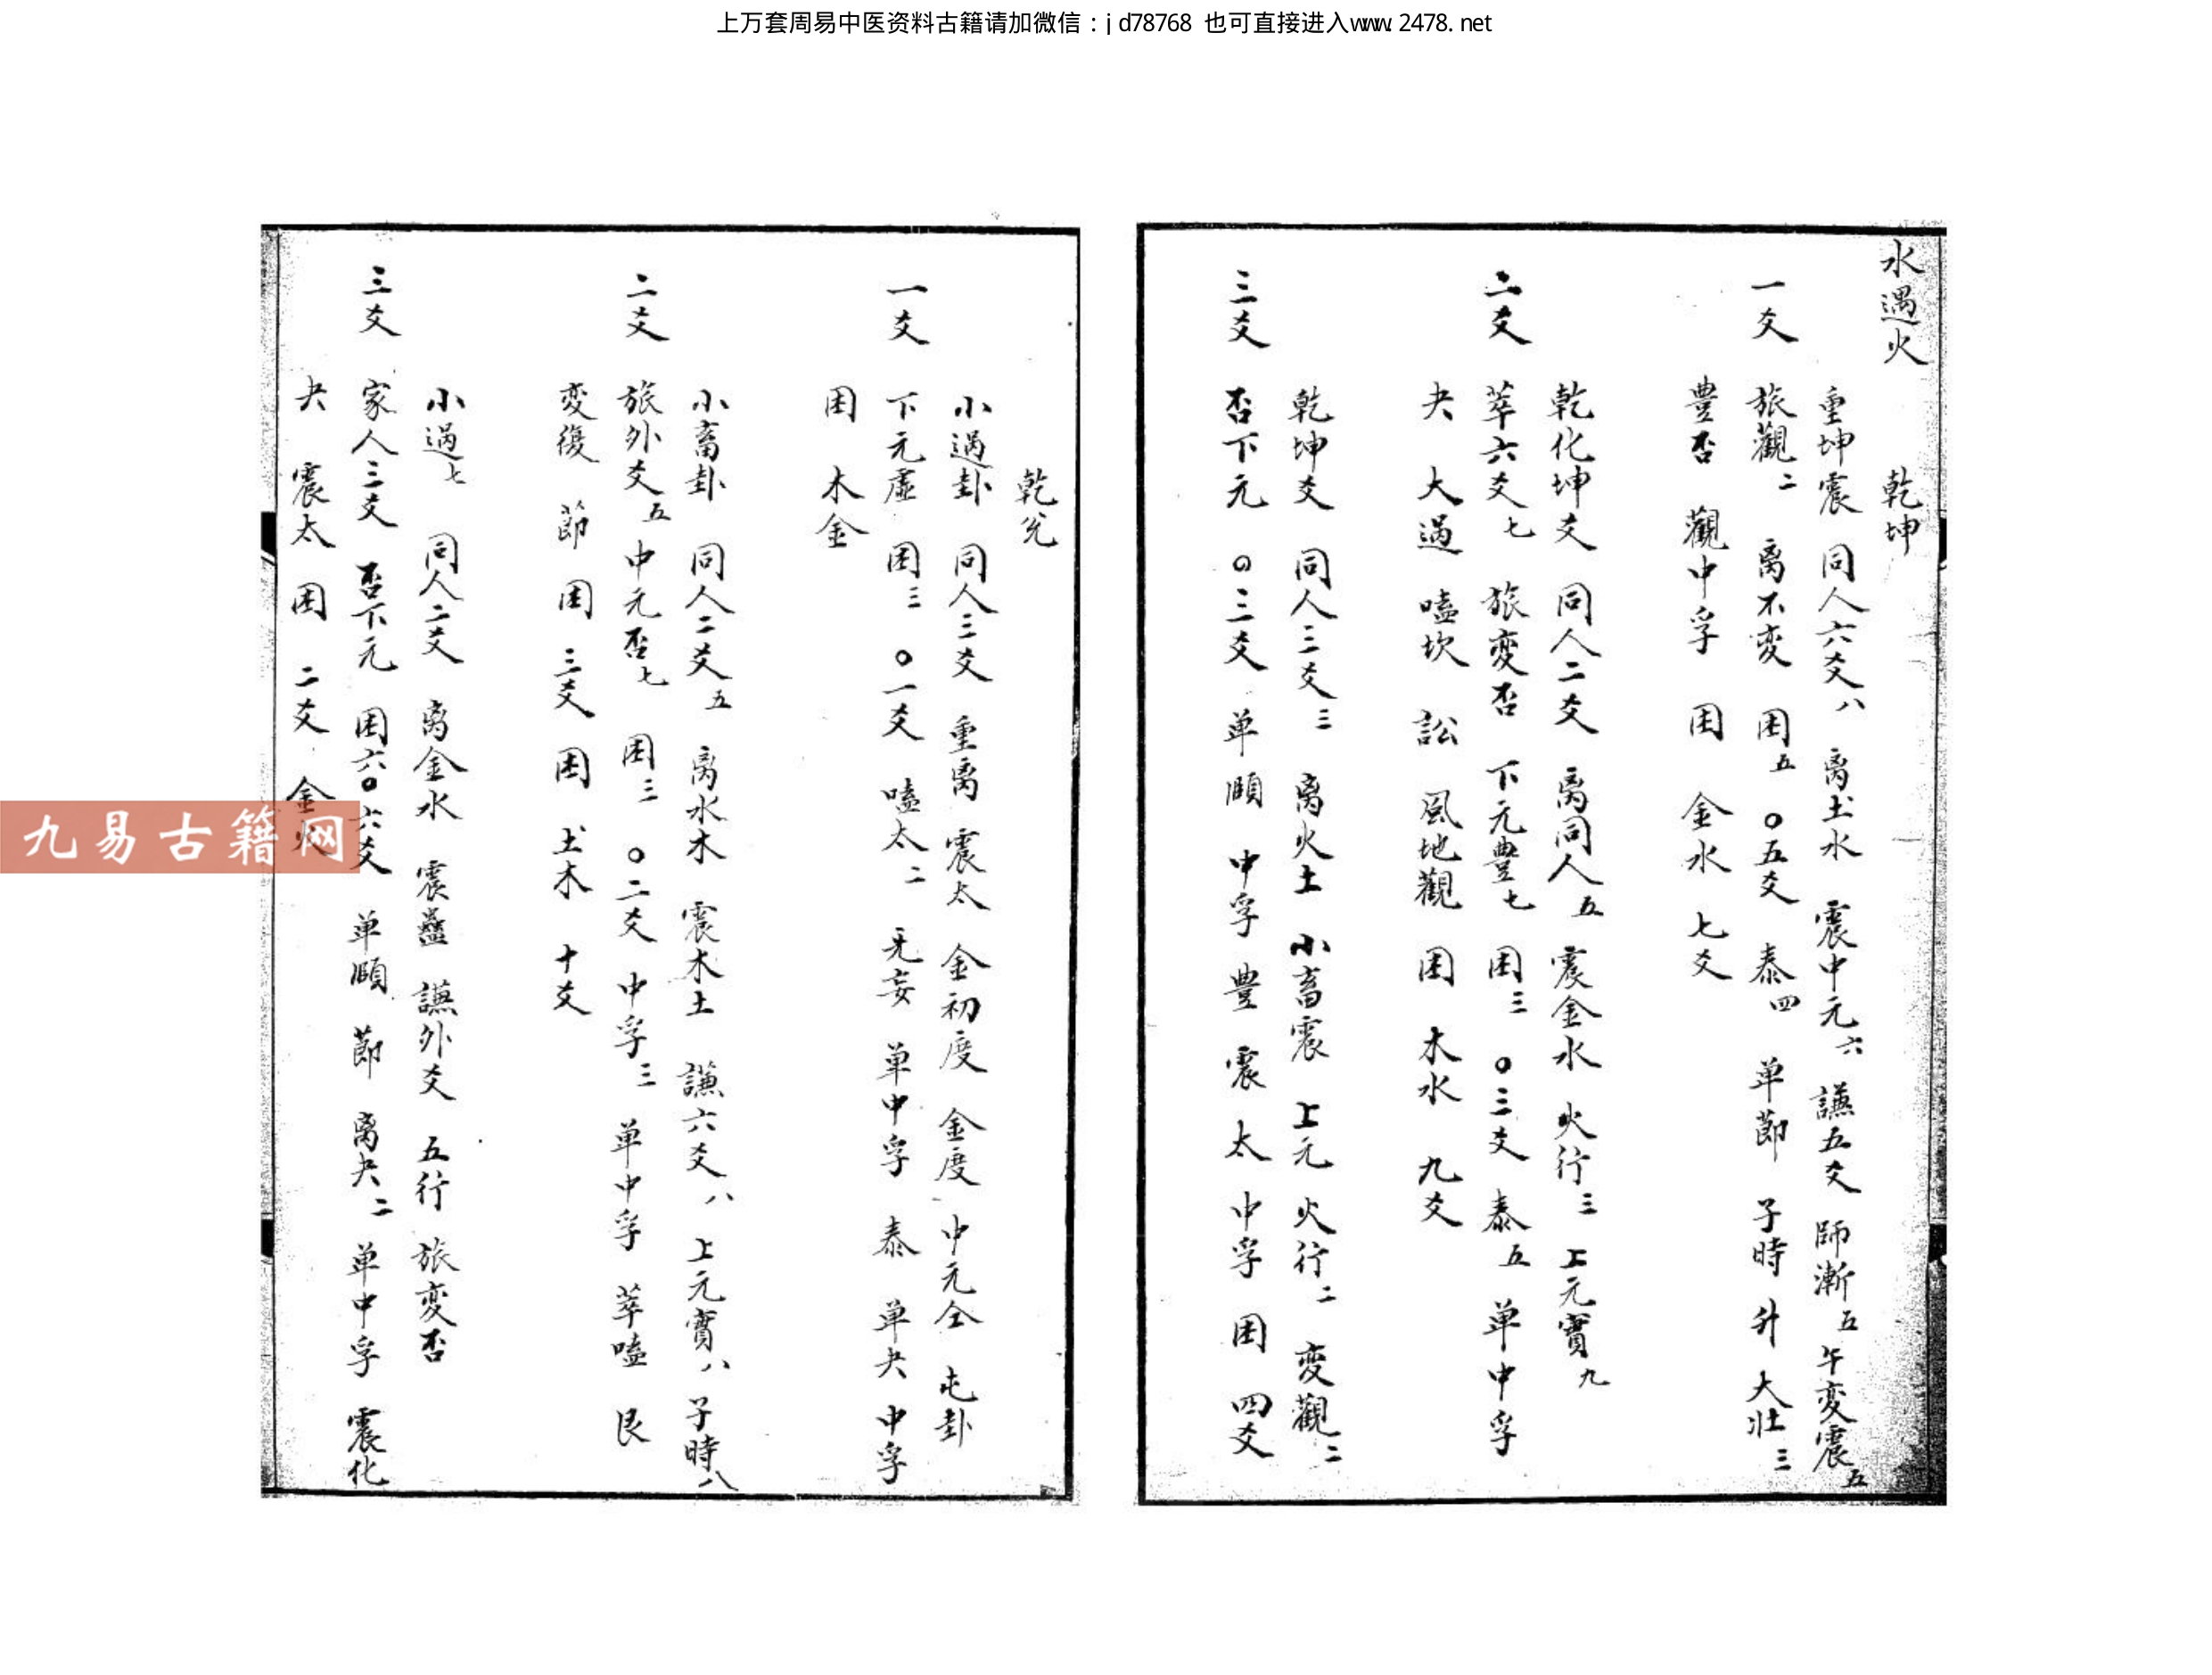 上万套周易中医资料古籍请加微信：jd78768 也可直接进入www.2478.net
水遇火 乾坤
重坤震 同人六爻八 离土水 震中元六 謙五爻 師漸五 午变震五
一爻 旅觀二 离不变 困五 〇五爻 泰四 单節 子時 升 大壯三
豐否 觀中孚 困 金水 七爻
乾化坤爻 同人二爻 离同人五 震金水 火行三 上元實九
二爻 萃六爻七 旅变否 下元豐七 困三 〇三爻 泰五 单中孚
夬 大過 嗑坎 訟 風地觀 困 木水 九爻
乾坤爻 同人三爻三 离火土 小畜震 上元 火行二 变觀二
三爻 否下元 〇三爻 单頤 中孚 豐 震太 中孚 困 四爻
乾兊
小過卦 同人三爻 重离 震太 金初度 金度 中元仝 屯卦
一爻 下元虛 困三 〇一爻 嗑太二 无妄 单中孚 泰 单夬 中孚
困 木金
小畜卦 同人二爻五 离水木 震木土 謙六爻八 上元實八 子時八
二爻 旅外爻五 中元否七 困三 〇二爻 中孚三 单中孚 萃嗑 艮
变復 節 困 三爻 困 土木 十爻
小過七 同人二爻 离金水 震蠱 謙外爻 五行 旅变否
三爻 家人三爻 否下元 困六〇六爻 单頤 節 离夬二 单中孚 震化
夬 震太 困 二爻 金火
九易古籍网